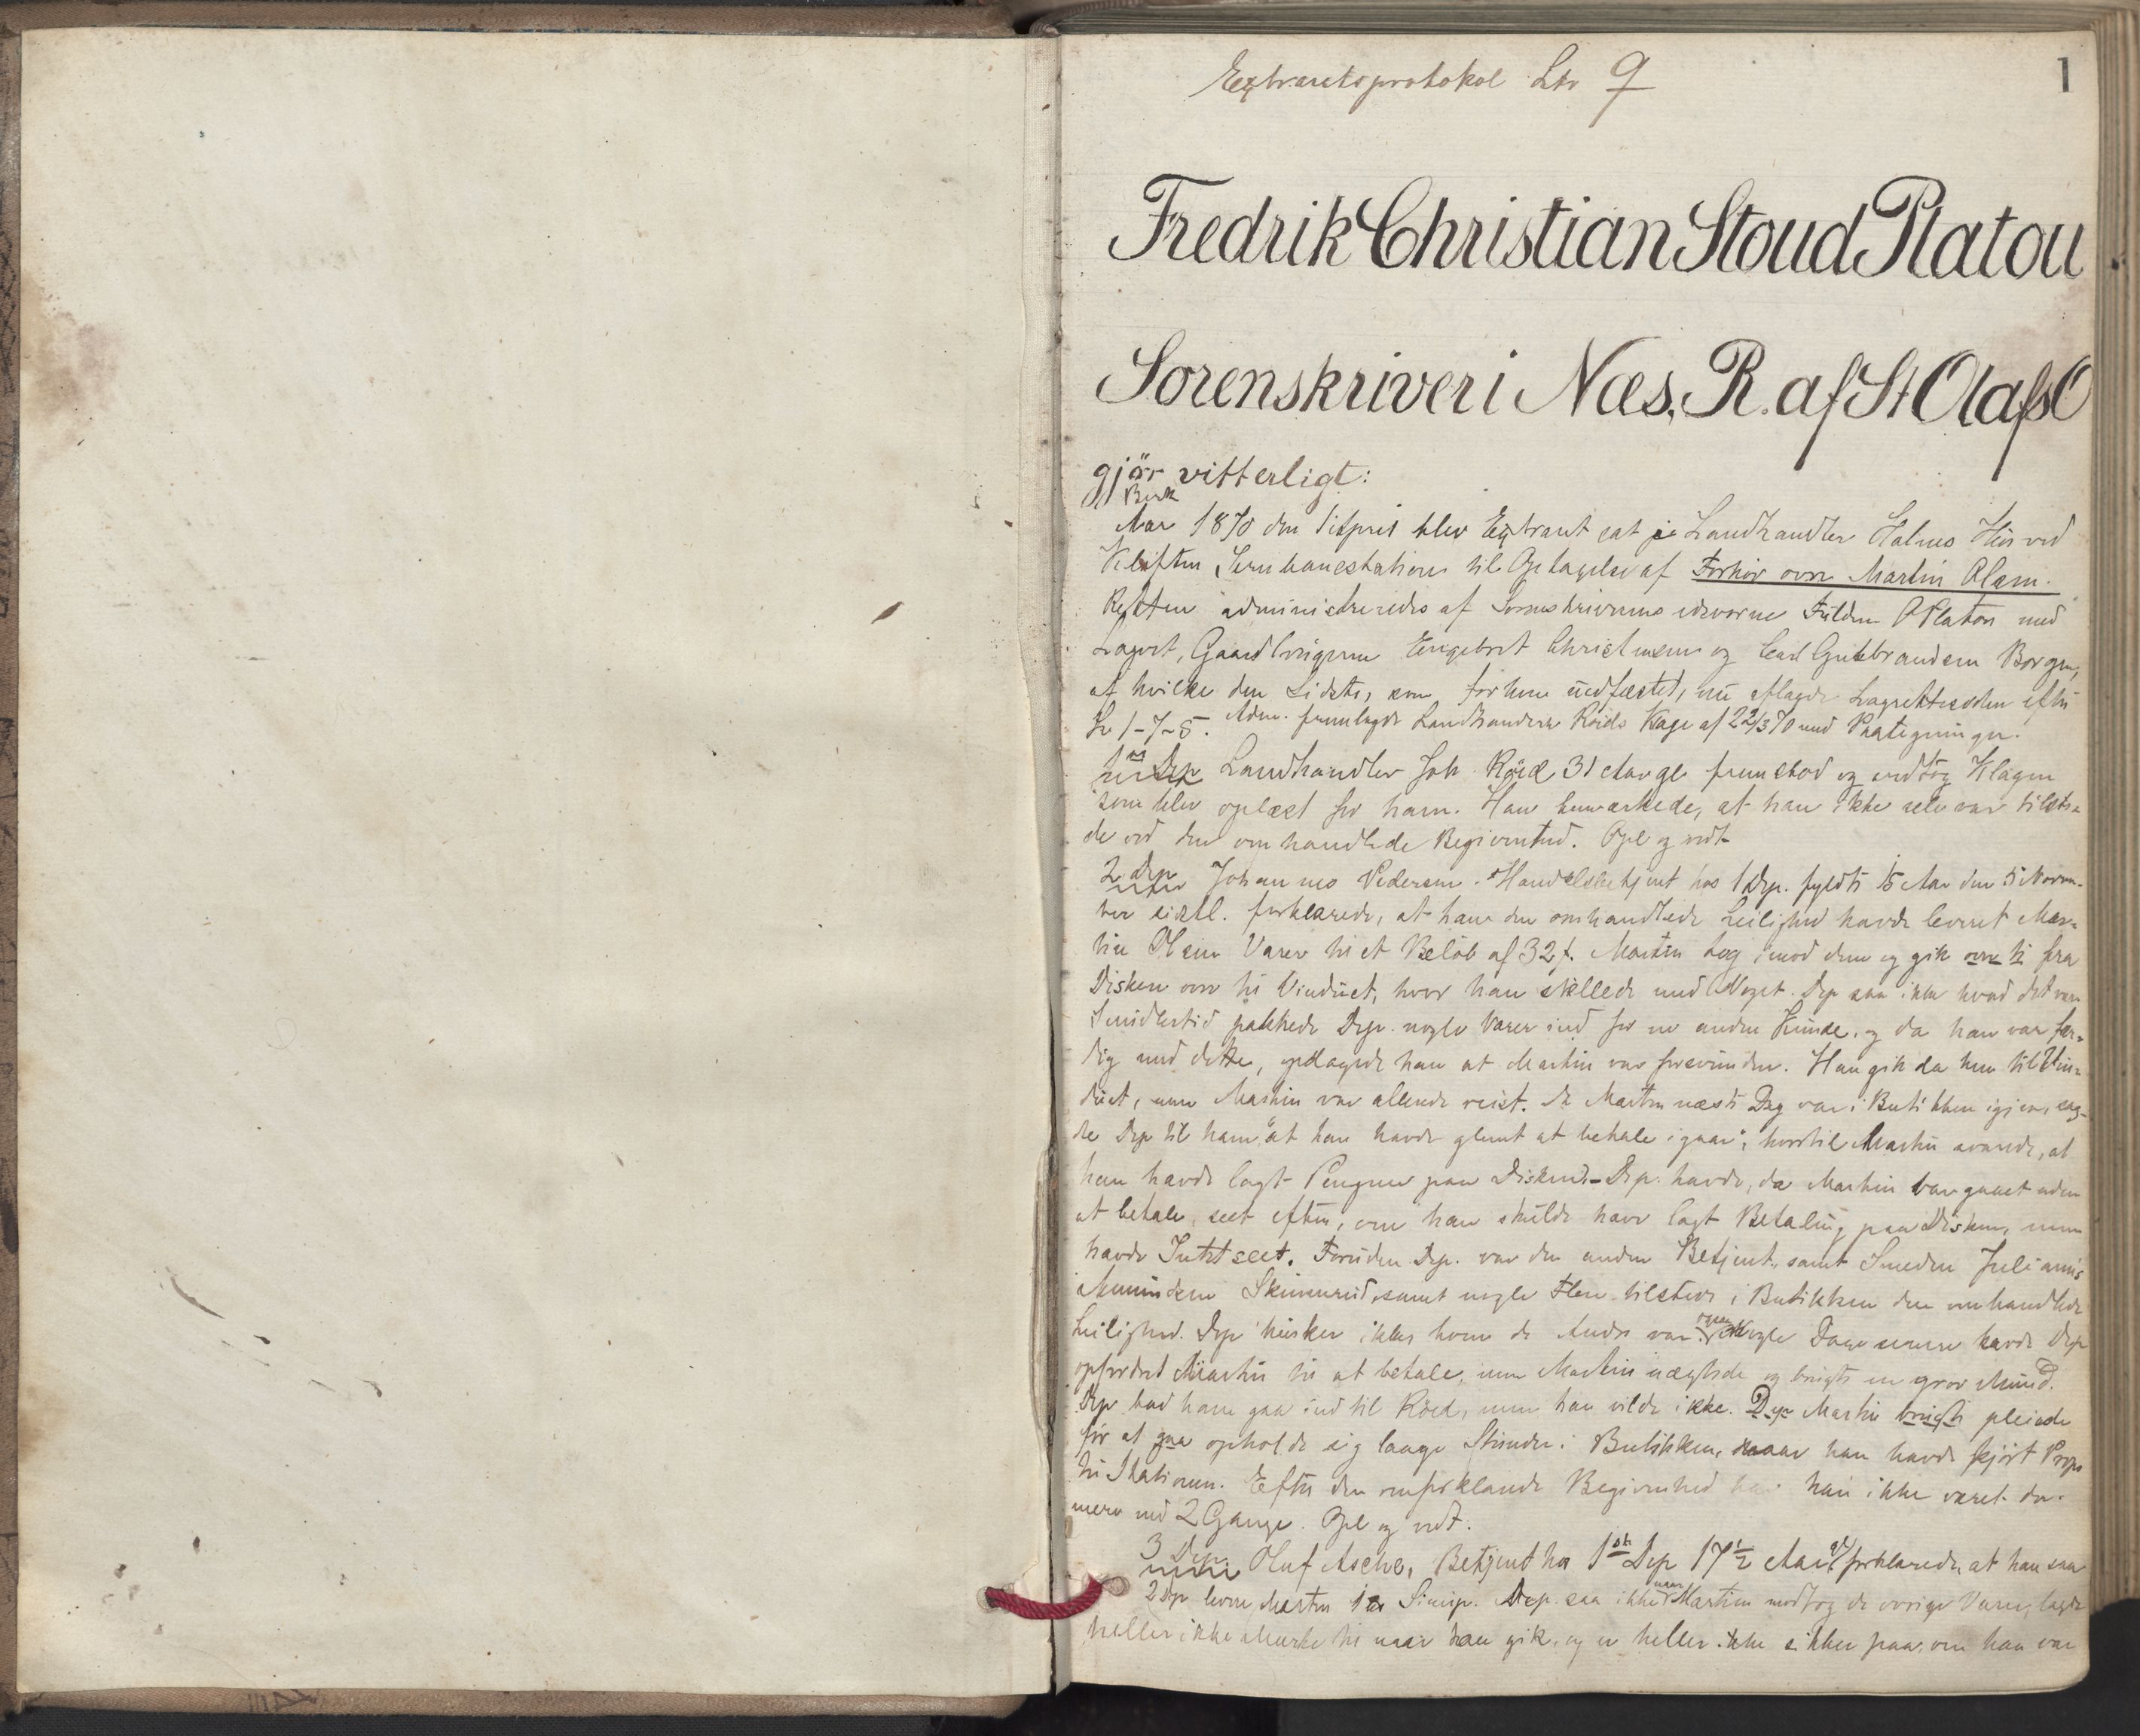 Extraretsprotokol Ltr 9
1
Fredrik Christian Stoud Platou
Sorenskriver i Næs, R. af St Olafs O
gjör vitterligt:
Aar 1870 den 1 April blev Extraret sat Landhandler Holmes Hus ved
Kløften Jernbanestation til Optagelse af Forhör over Martin Olsen.
Retten administreredes af Sorenskriverens edsvorne Fuldm O Platou med
Lagret, Gaardbrugerne Engebret Christensen og Carl Gulbrandsen Borgen,
af hvilke den Sidste, som forhen uedfæstet, nu aflagde Lagretteseden efter
Lv 1-7-5. Adm. fremlagde Landhandler Röids Klage af 22/3 70 med Paategninger.
Landhandler Joh. Röid 31 Aar gl fremstod og vedtog Klagen
som blev oplæst for ham. Han bemærkede, at han ikke selv var tilste-
de ved den omhandlede Begivenhed. Opl og vedt
2 Dep Johannes Pedersen. Handelsbetjent hos 1 Dep. fyldte 15 Aar den 5 Novem-
ber sidstl. forklarede, at han den omhandlede Leilighed havde leveret Mar-
tin Olsen Varer til et Belöb af 32 f. Martin tog imod dem og gik over ti fra
Disken over til Vinduet, hvor han stellede med Noget. Dep saa ikke hvad det var
Imidlertid pakkede Dep. nogle Varer ind for en anden Kunde, og da han var fær-
dig med dette, opdagede han at Martin var forsvunden. Han gik da hen til Vin-
duet, men Martin var allerede reist. Da Martin næste Dag var i Butikken igjen, sag-
de Dep til ham "at han havde glemt at betale igaar", hvortil Martin svarede, at
han havde lagt Pengene paa Disken. - Dep. havde, da Martin var gaaet uden
at betale, seet efter, om han skulde have lagt Betaling paa Disken, men
havde Intet seet. Foruden Dep. var den anden Betjent, samt Smeden Julianus
Amundsen Skimmerud, samt nogle Flere tilstede i Butikken den omhandlede
Leilighed. Dep husker ikke hvem de Andre var. Nogle Dage senere havde Dep
opfordret Martin til at betale, men Martin nægtede og brugte en grov Mund.
Dep bad ham gaa ind til Röid, men han vilde ikke. Dep Martin brugte pleiede
för at gaa opholde sig lange Stunder i Butikken, naar han havde kjört Props
til Stationen. Efter den omforklarede Begivenhed har han ikke været der
mere end 2 Gange. Opl og vedt.
3 Dep. Oluf Ascher, Betjent hos 1ste Dep 17 1/2 Aar gl forklarede, at han saa
2 Dep levere Martin Sirup. Dep. saa ikke naar Martin modtog de övrige Varer, lagde
heller ikke Mærke til naar han gik, og er heller ikke sikker paa, om han var